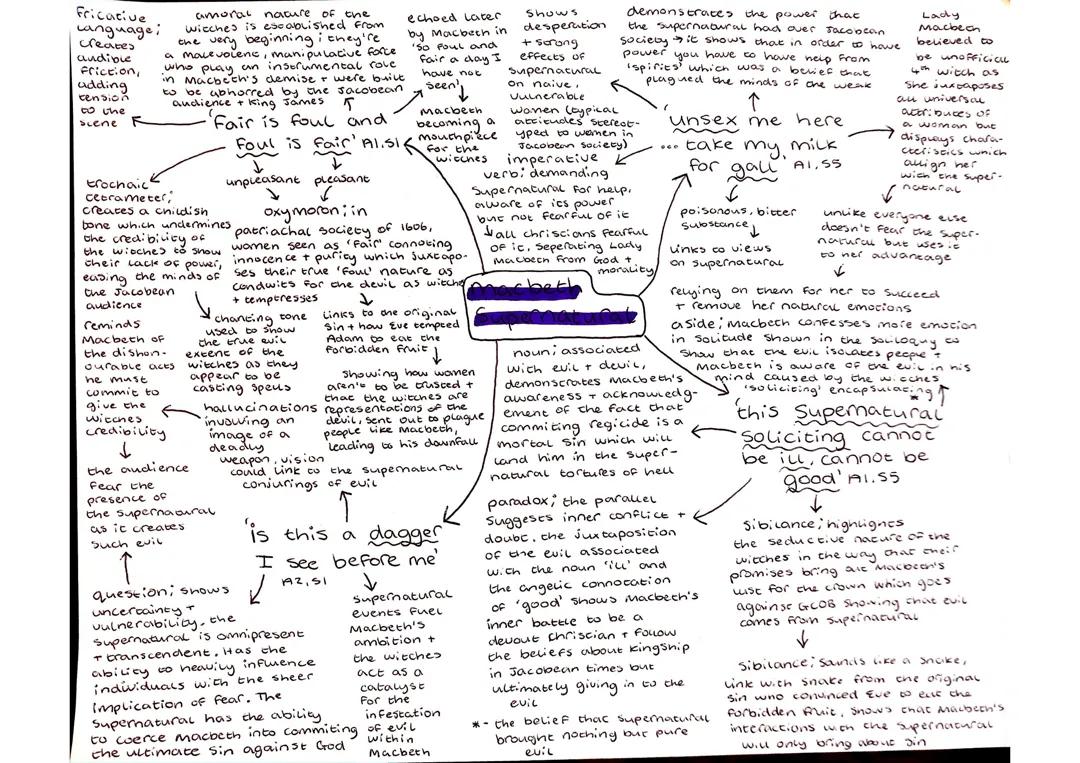 Fricative
language;
creates
audible
friction,
adding
tension
to the
scene
amoral nature of the
witches is established from
the very beginning; they're
a malevolent, manipulative force
who play an instrumental role
in Macbeth's demise + were built
to be abhorred by the Jacobean
audience + King James
echoed later
by Macbeth in
'so foul and
fair a day I
have not
seen'
Macbeth
becoming a
mouthpiece
for the
witches
'Fair is foul and
foul is fair' A1,S1
unpleasant pleasant
oxymoron; in
patriachal society of 1606,
women seen as 'fair' connoting
innocence + purity which juxtapo-
ses their true 'foul' nature as
conduits for the devil as witches
+ temptresses
trochaic
tetrameter;
creates a childish
tone which undermines
the credibility of
the witches to show
their lack of power,
easing the minds of
the Jacobean
audience
chanting tone
used to show
the true evil
extent of the
witches as they
appear to be
casting spells
links to the original
sin + how Eve tempted
Adam to eat the
forbidden fruit
showing how women
aren't to be trusted +
that the witches are
representations of the
devil, sent out to plague
people like Macbeth,
leading to his downfall
shows
desperation
+ strong
effects of
supernatural
on naive,
vulnerable
women (typical
attitudes stereot-
yped to women in
Jacobean society)
imperative
verb; demanding
supernatural for help,
aware of its power
but not fearful of it
all christians fearful
of it, seperating Lady
Macbeth from God +
morality
demonstrates the power that
the supernatural had over Jacobean
society → it shows that in order to have
power you have to have help from
'spirits' which was a belief that
plagued the minds of the weak
'unsex me here
... take my milk
for gall' A1,S5
Lady
Macbeth
believed to
be unofficial
4th witch as
she juxtaposes
all universal
attributes of
a woman but
displays chara-
cteristics which
allign her
with the super-
natural
poisonous, bitter
substance
links to views
on supernatural
unlike everyone else
doesn't fear the super-
natural but uses it
to her advantage
relying on them for her to succeed
+ remove her natural emotions
Macbeth
Supernatural
aside; Macbeth confesses more emotion
in solitude shown in the soliloquy to
show that the evil isolates people +
Macbeth is aware of the evil in his
mind caused by the witches
'soliciting' encapsulating *
'this supernatural
soliciting cannot
be ill, cannot be
good' A1,S5
noun; associated
with evil + devil,
demonstrates Macbeth's
awareness + acknowledg-
ement of the fact that
commiting regicide is a
mortal sin which will
land him in the super-
natural tortures of hell
paradox; the parallel
suggests inner conflict +
doubt. the juxtaposition
of the evil associated
with the noun 'ill' and
the angelic connotation
of 'good' shows Macbeth's
inner battle to be a
devout christian + follow
the beliefs about kingship
in Jacobean times but
ultimately giving in to the
evil
* - the belief that supernatural
brought nothing but pure
evil
sibilance; highlights
the seductive nature of the
witches in the way that their
promises bring out Macbeth's
lust for the crown which goes
against GCOB showing that evil
comes from supernatural
sibilance; sounds like a snake,
link with snake from the original
sin who convinced Eve to eat the
forbidden fruit, shows that Macbeth's
interactions with the supernatural
will only bring about sin
'is this a dagger
I see before me'
A2,S1
hallucinations
involving an
image of a
deadly
weapon, vision
could link to the supernatural
conjurings of evil
reminds
Macbeth of
the dishon-
ourable acts
he must
commit to
give the
witches
credibility
the audience
fear the
presence of
the supernatural
as it creates
such evil
question; shows
uncertainty +
vulnerability. the
supernatural is omnipresent
+ transcendent. Has the
ability to heavily influence
individuals with the sheer
implication of fear. The
supernatural has the ability
to coerce Macbeth into commiting
the ultimate sin against God
supernatural
events fuel
Macbeth's
ambition +
the witches
act as a
catalyst
for the
infestation
of evil
within
Macbeth